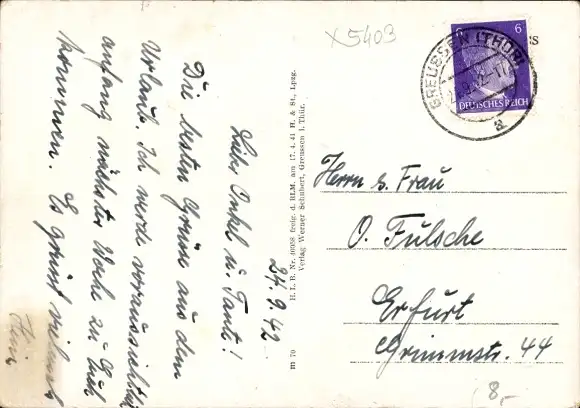 x5403
6 6
GREUSSEN (THÜR)
DEUTSCHES REICH
a
24.9.42.
Liebe Onkel u. Tante!
Die besten Grüße aus dem
Urlaub. Ich werde voraussichtlich
anfang nächster Woche zu Euch
kommen. Es grüßt vielmals
H. L. B. Nr. 46058 freig. d. RLM. am 17. 4. 41 H. & St., Lpzg.
Verlag Werner Schubert, Greussen i. Thür.
m 70
Herrn u. Frau
O. Fulsche
Erfurt
Grimmstr. 44
8,-